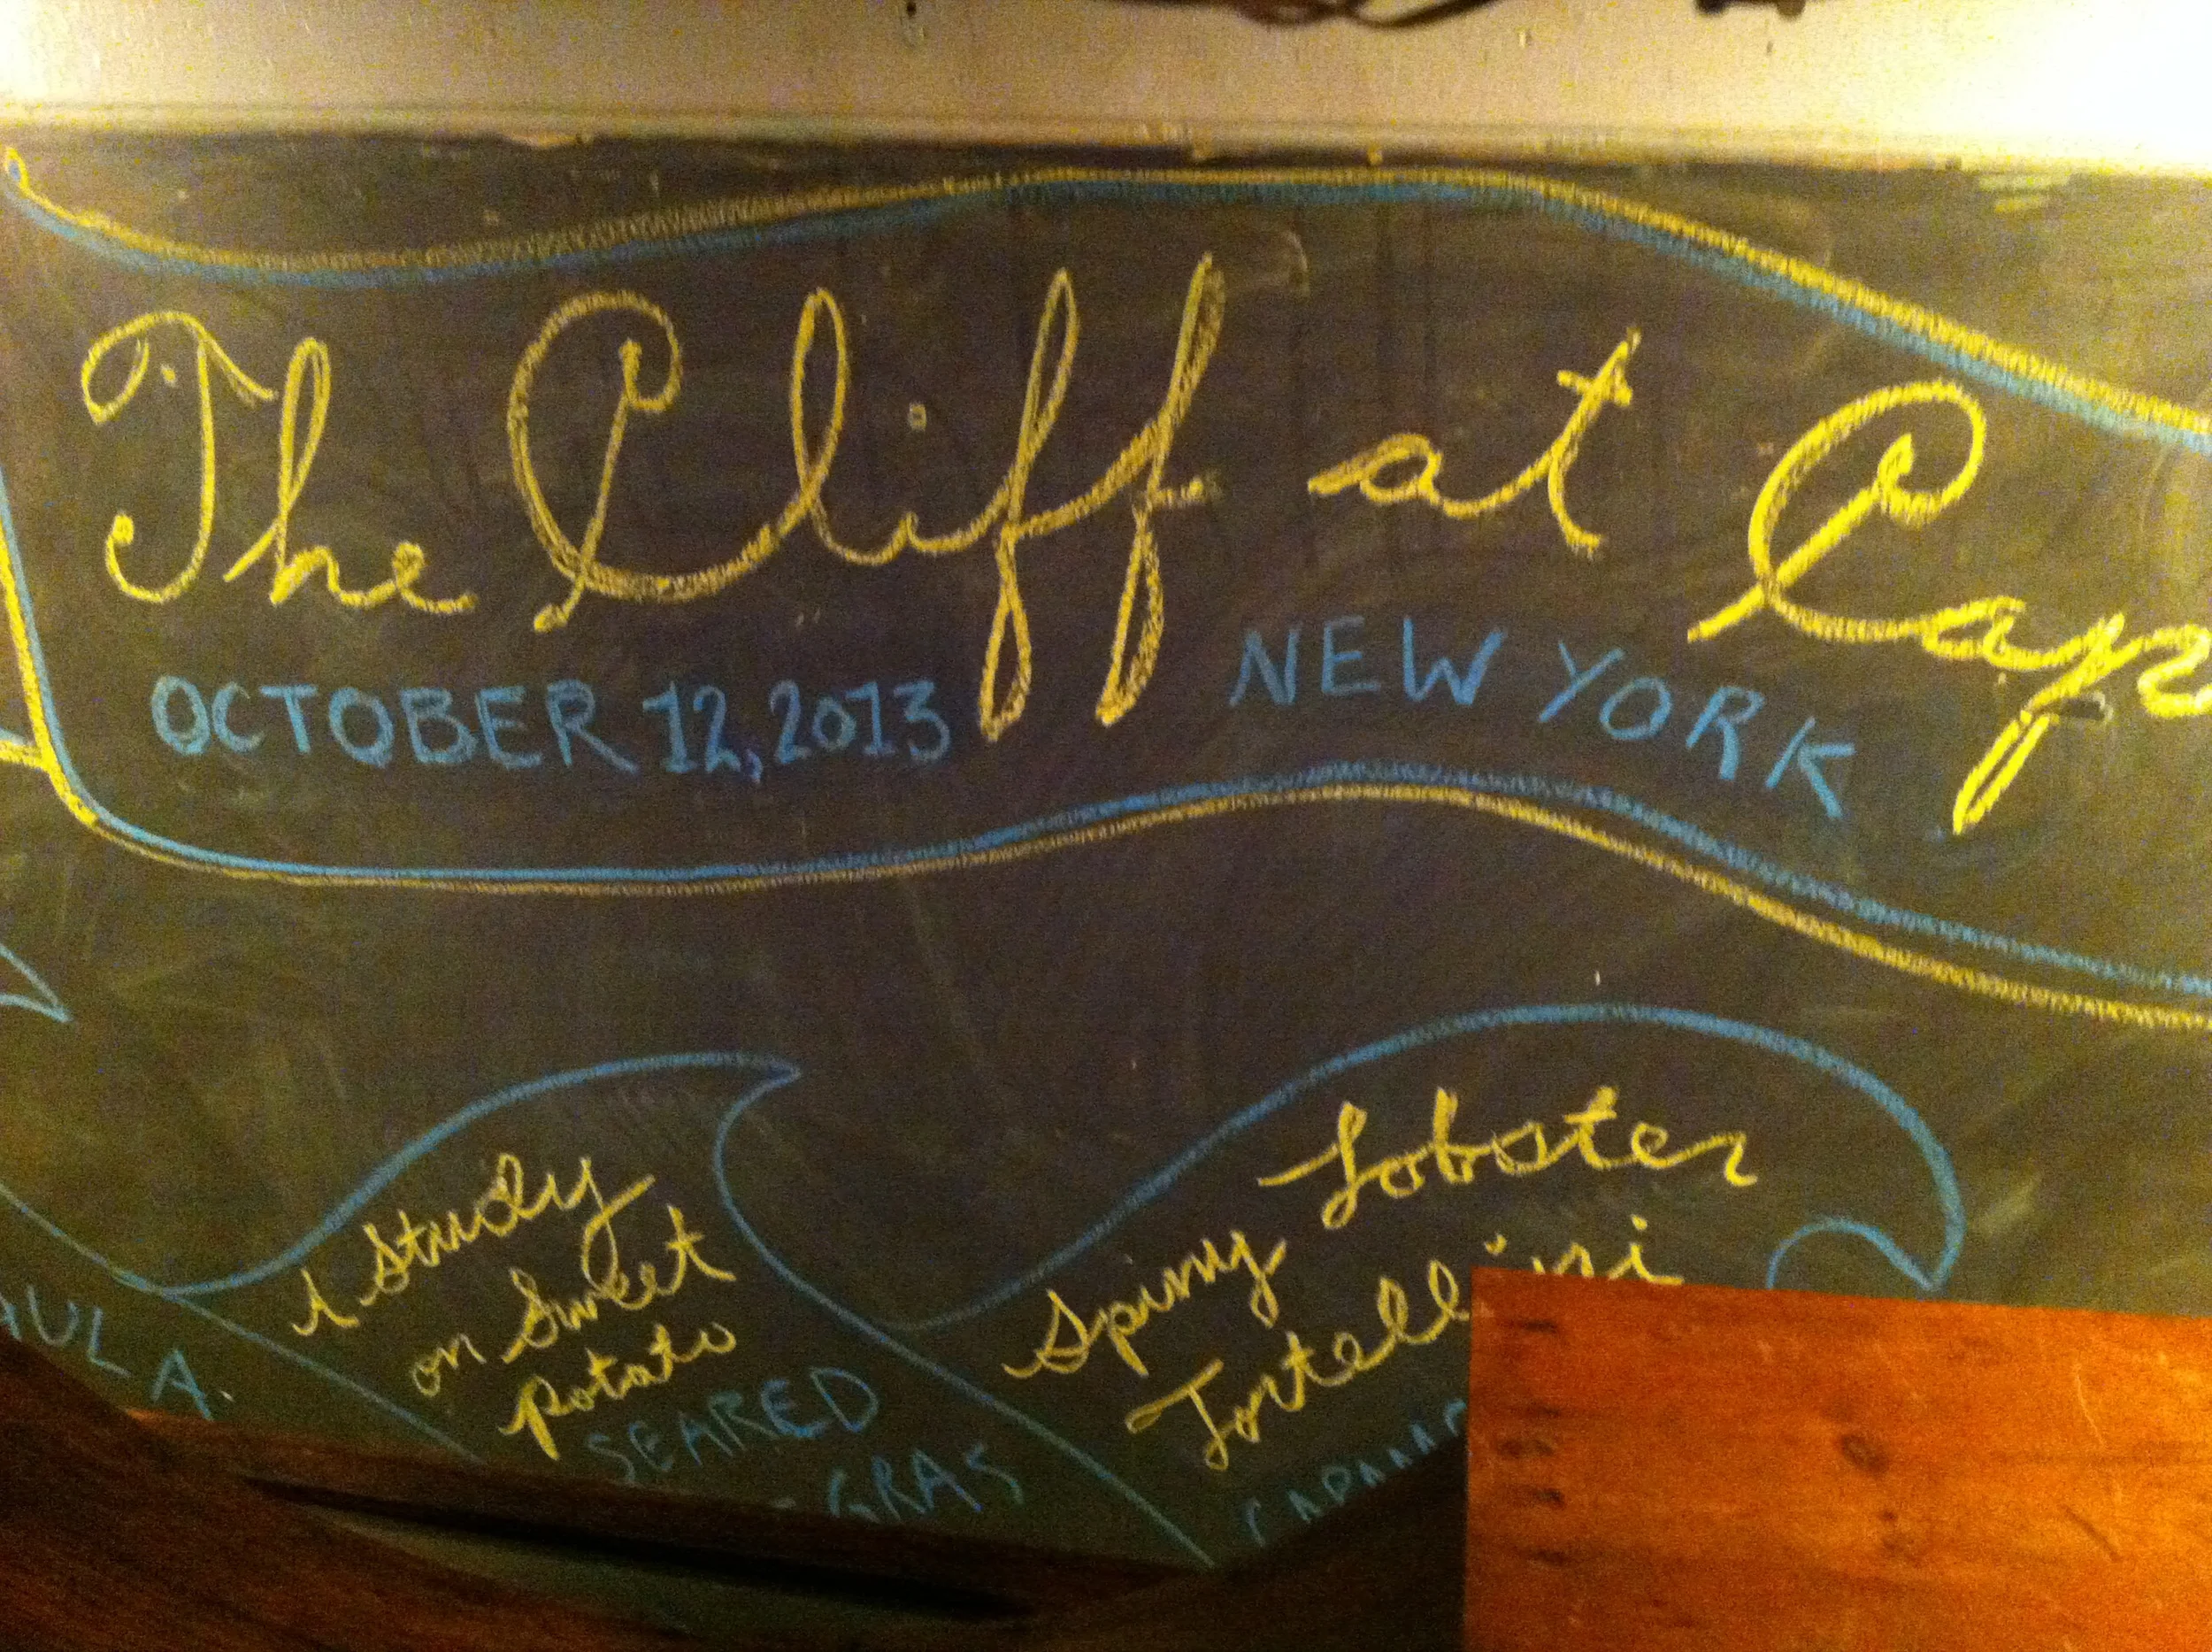 The Cliff at Cap
OCTOBER 12, 2013 NEW YORK
A Study
on Sweet
Potato
SEARED
GRAS
Lobster
Spiny
Tortellini
AULA.